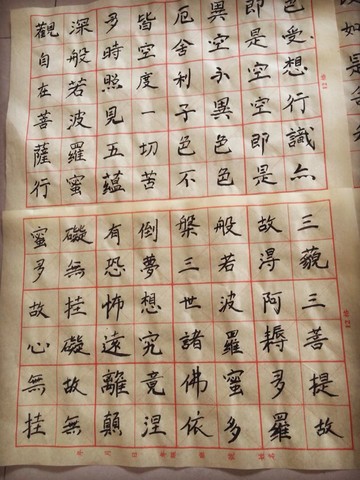 觀自在菩薩行
深般若波羅蜜
多時照見五蘊
皆空度一切苦
厄舍利子色不
異空不異色色
即是空空即是
色受想行識亦
蜜多故心無挂
礙無挂礙故無
有恐怖遠離顛
倒夢想究竟涅
槃三世諸佛依
般若波羅蜜多
故得阿耨多羅
三藐三菩提故
如是